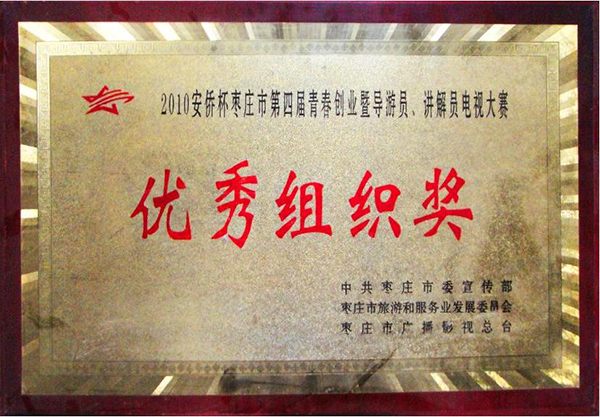 2010安侨杯枣庄市第四届青春创业暨导游员、讲解员电视大赛
优秀组织奖
中共枣庄市委宣传部
枣庄市旅游和服务业发展委员会
枣庄市广播影视总台